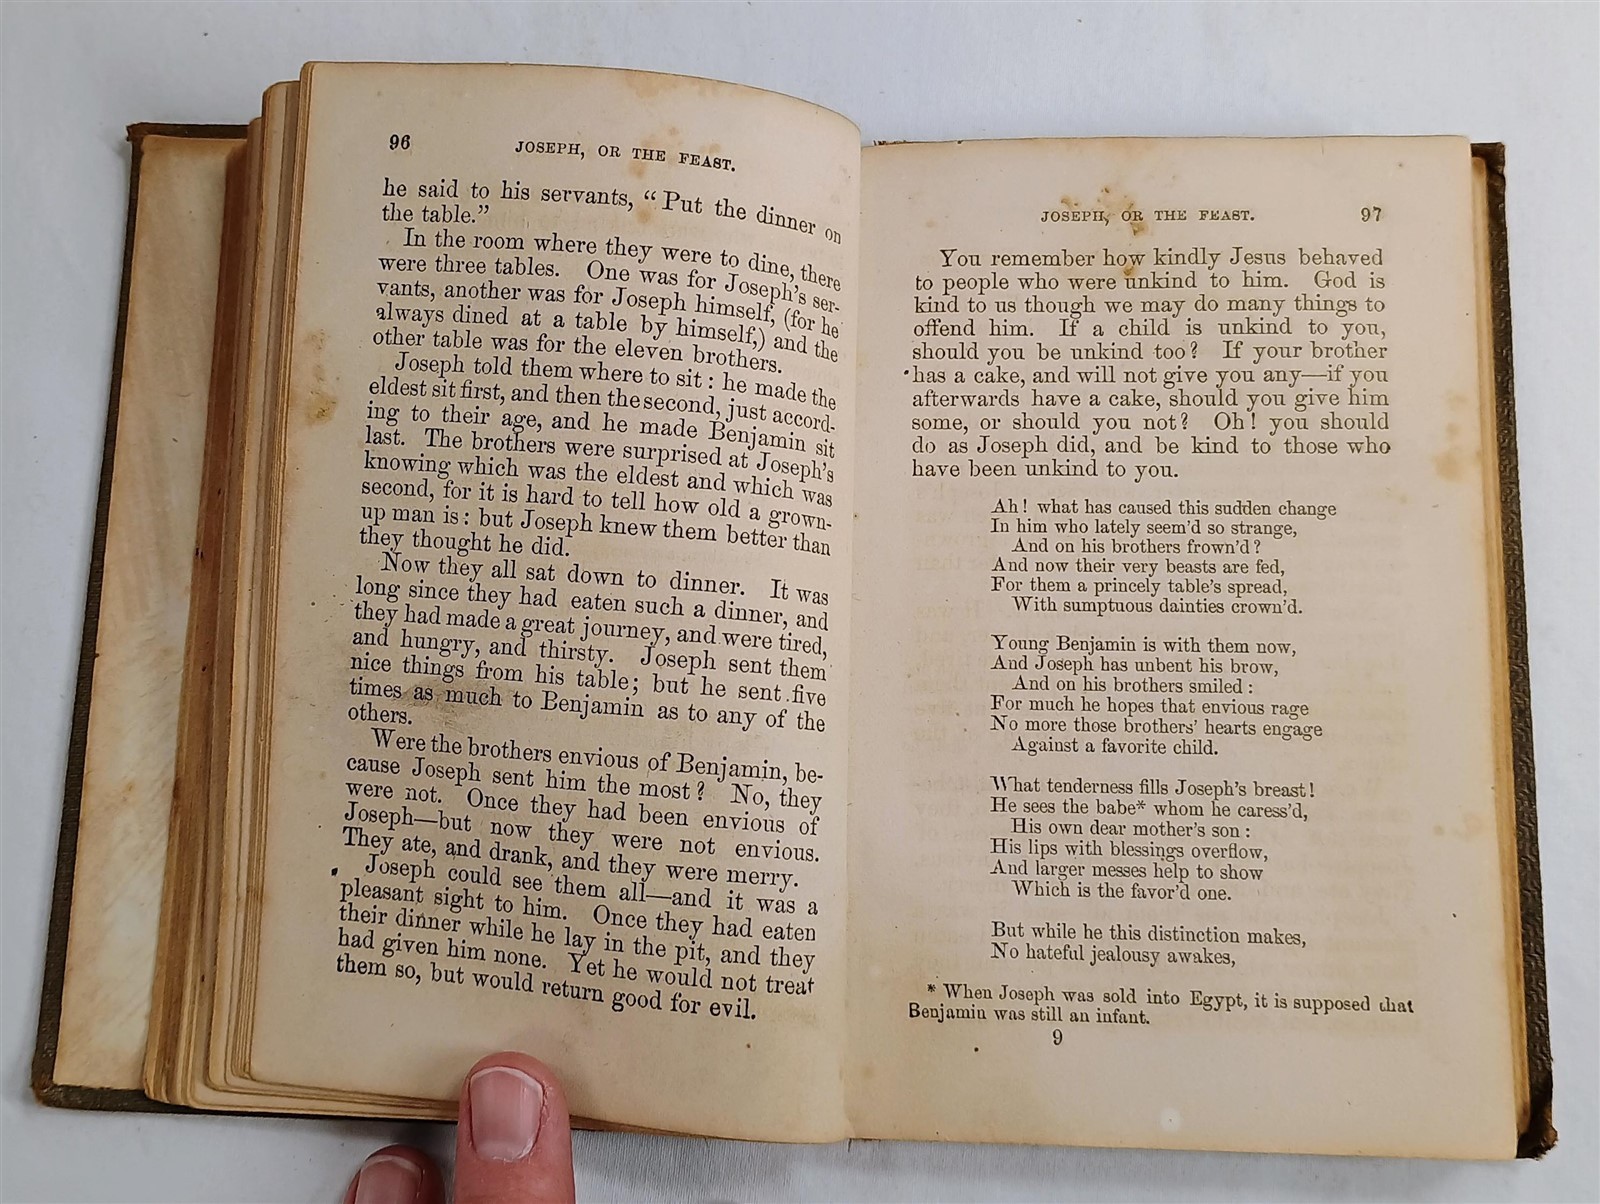 96
JOSEPH, OR THE FEAST.
he said to his servants, “Put the dinner on
the table.”
In the room where they were to dine, there
were three tables. One was for Joseph’s ser-
vants, another was for Joseph himself, (for he
always dined at a table by himself,) and the
other table was for the eleven brothers.
Joseph told them where to sit: he made the
eldest sit first, and then the second, just accord-
ing to their age, and he made Benjamin sit
last. The brothers were surprised at Joseph’s
knowing which was the eldest and which was
second, for it is hard to tell how old a grown-
up man is: but Joseph knew them better than
they thought he did.
Now they all sat down to dinner. It was
long since they had eaten such a dinner, and
they had made a great journey, and were tired,
and hungry, and thirsty. Joseph sent them
nice things from his table; but he sent five
times as much to Benjamin as to any of the
others.
Were the brothers envious of Benjamin, be-
cause Joseph sent him the most? No, they
were not. Once they had been envious of
Joseph—but now they were not envious.
They ate, and drank, and they were merry.
Joseph could see them all—and it was a
pleasant sight to him. Once they had eaten
their dinner while he lay in the pit, and they
had given him none. Yet he would not treat
them so, but would return good for evil.
JOSEPH, OR THE FEAST.
97
You remember how kindly Jesus behaved
to people who were unkind to him. God is
kind to us though we may do many things to
offend him. If a child is unkind to you,
should you be unkind too? If your brother
has a cake, and will not give you any—if you
afterwards have a cake, should you give him
some, or should you not? Oh! you should
do as Joseph did, and be kind to those who
have been unkind to you.
Ah! what has caused this sudden change
In him who lately seem’d so strange,
And on his brothers frown’d?
And now their very beasts are fed,
For them a princely table’s spread,
With sumptuous dainties crown’d.
Young Benjamin is with them now,
And Joseph has unbent his brow,
And on his brothers smiled:
For much he hopes that envious rage
No more those brothers’ hearts engage
Against a favorite child.
What tenderness fills Joseph’s breast!
He sees the babe* whom he caress’d,
His own dear mother’s son:
His lips with blessings overflow,
And larger messes help to show
Which is the favor’d one.
But while he this distinction makes,
No hateful jealousy awakes,
* When Joseph was sold into Egypt, it is supposed that
Benjamin was still an infant.
9